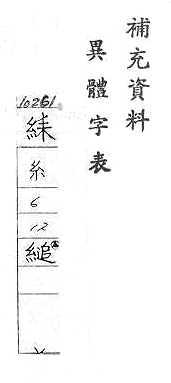 補充資料
異體字表
10261
糸
6
12
縋